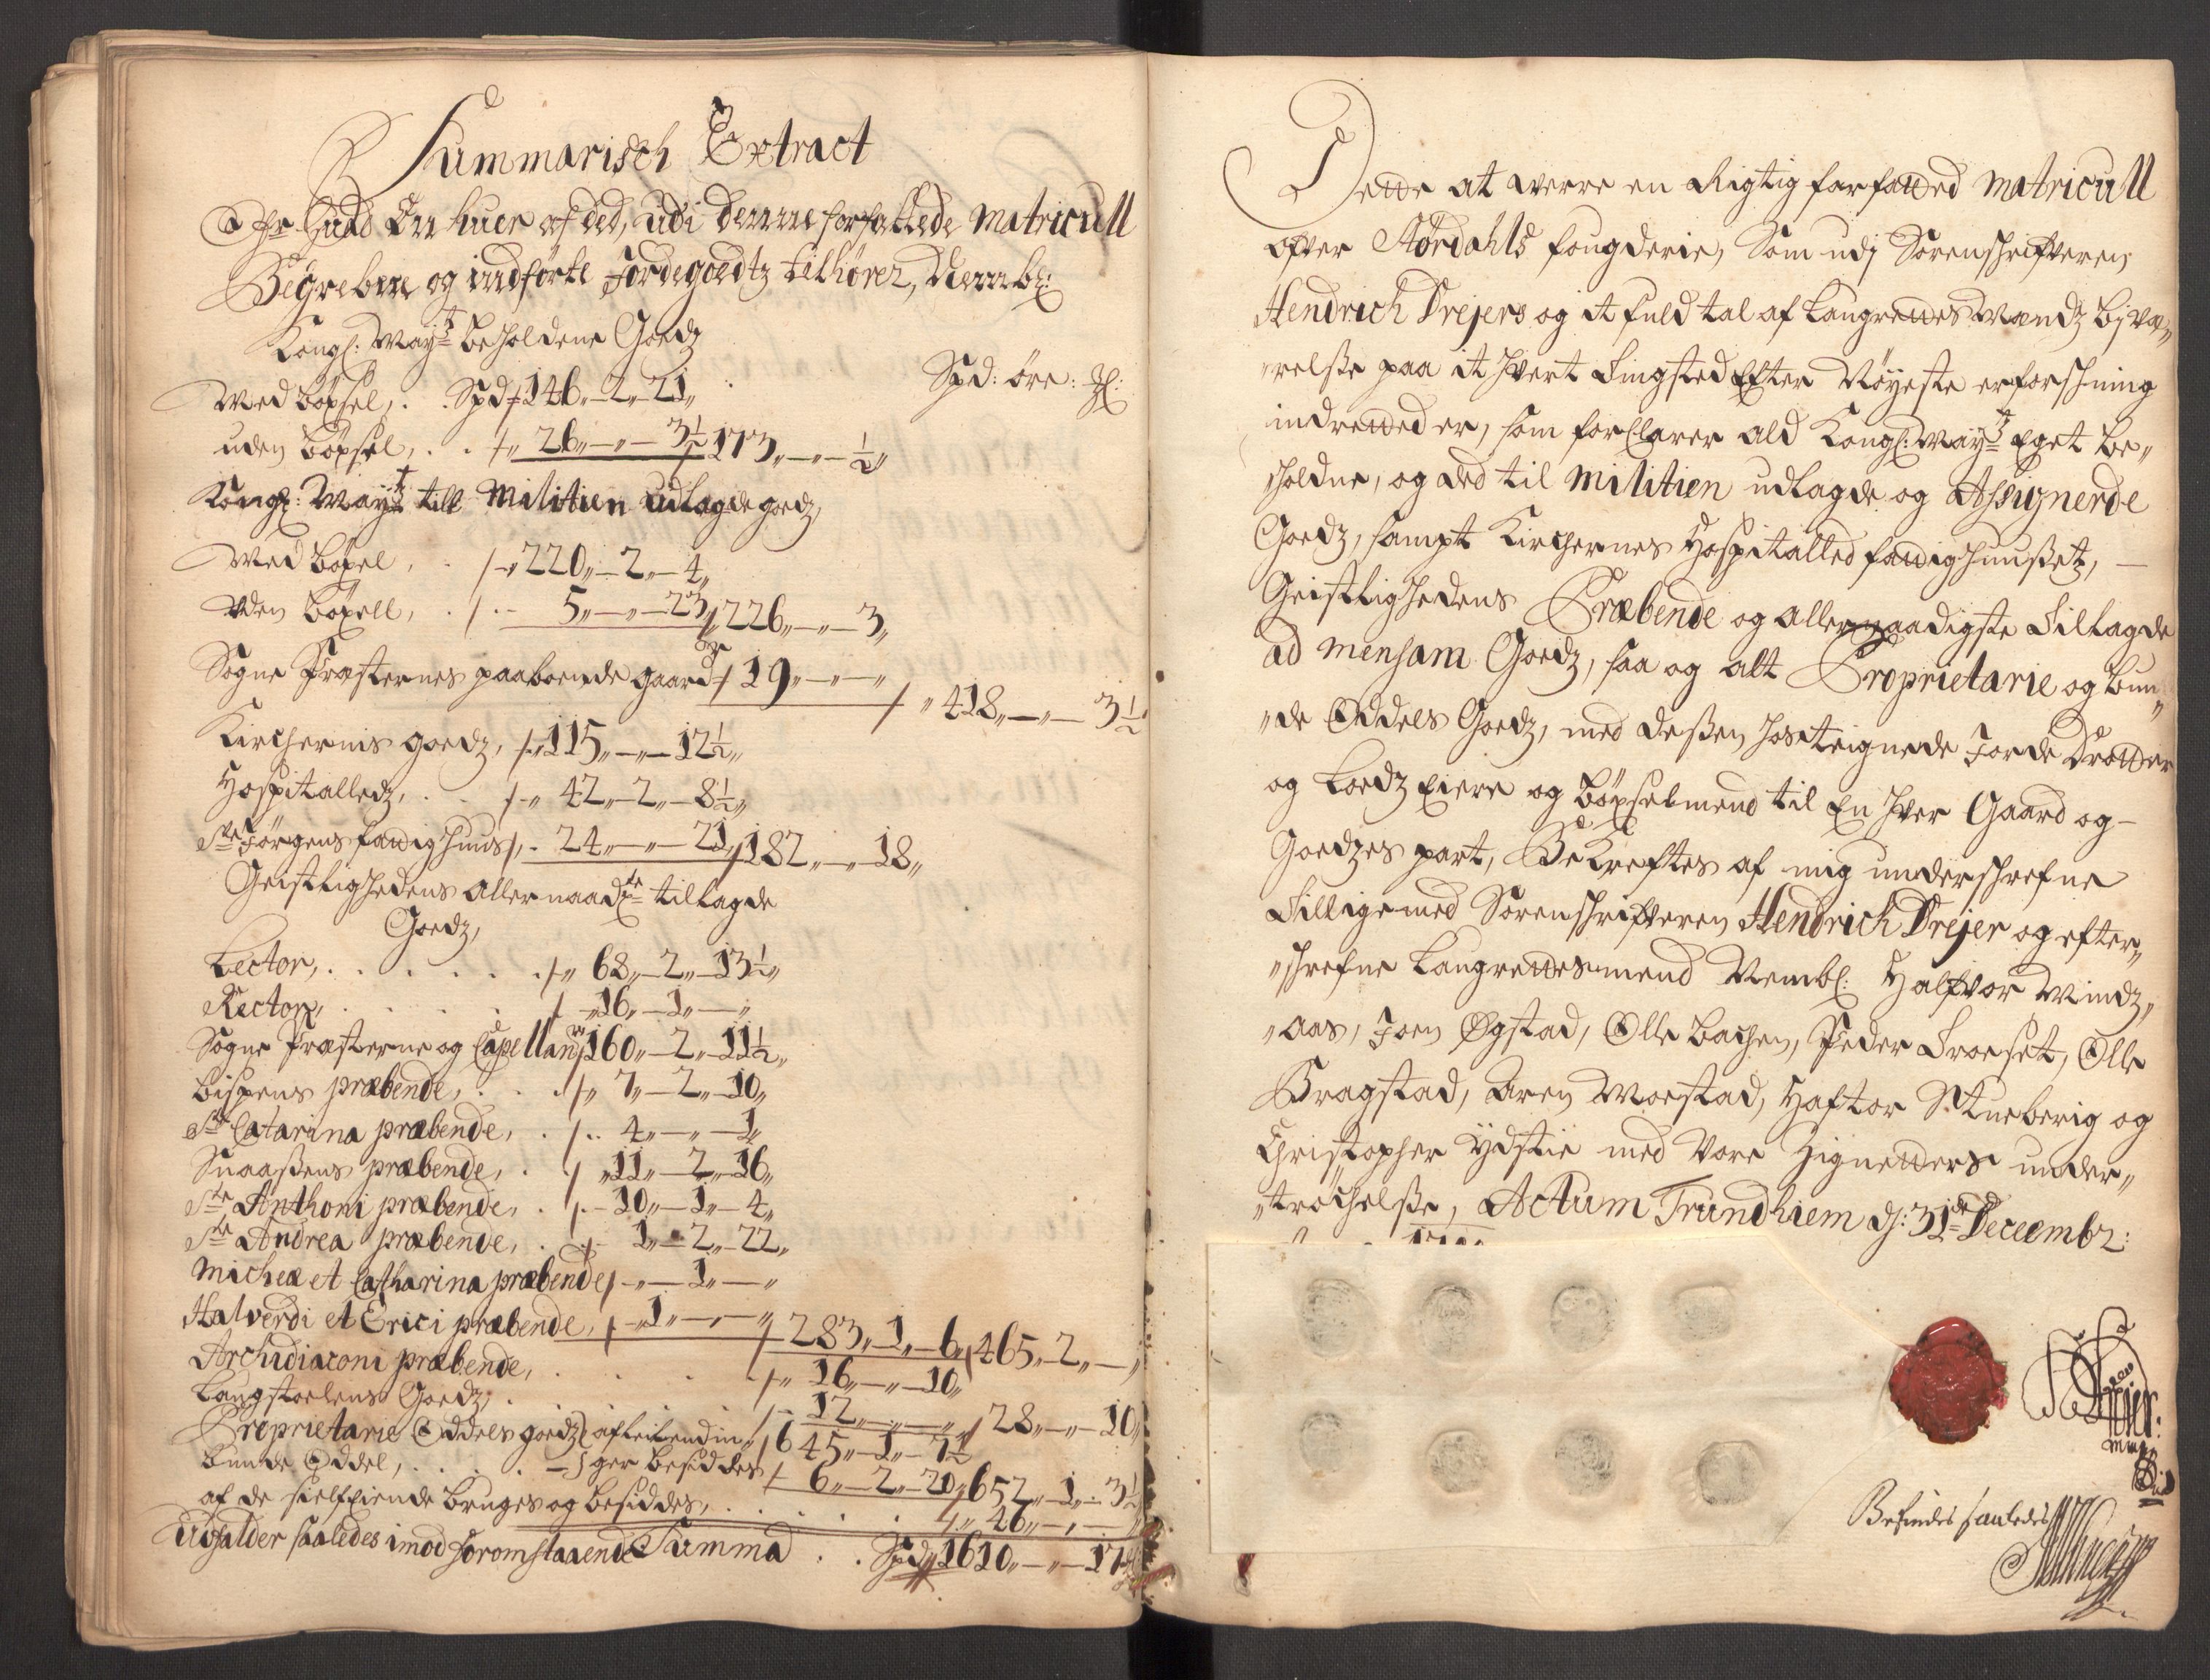 Summarisch Extract
Ofr huad En huer af ded, udi denne forfattede Matricull
Begrebne og indførte Jordegoedtz tilhører, Nembl:
Kongl: Mayts beholdene Goedz
Spd: öre: Ml:
Med böxsel, . . Spd 146,,—2,,—21,,
uden böxsel, . . 26,,—,,—3½ 173,,—,,—½,,
Kongl: Mayts till Militien udlagde goedz,
Med böxel, . 220,,—2,,—4,,
Uden böxell, . 5,,—,,—23 226,,—,,—3,,
Sogne Præsternes paaboende gaard 19,,—,,—,,
418,,—,,—3½
Kirchernis goedz, 115,,—,,—12½,,
Hospitalledz, . . 42,,—2,,—8½,,
Ste Jørgens fattighuus, 24,,—,,—21,, 182,,—,,—18,,
Geistlighedens allernaadste tillagde
Goedz,
Lector, . . . . . . 68,,—2,,—13½,,
Rector, . . . . . 16,,—1,,—,,
Sogne Præsterne og Capellan 160,,—2,,—11½,,
bispens præbende, . . . 7,,—2,,—10,,
Ste Catarina præbende, . 4,,—,,—1,,
Snaaßens præbende, . 11,,—2,,—16,,
Ste Anthoni præbende, . 10,,—1,,—4,,
Ste Andrea præbende, . . 1,,—2,,—22,,
Micheæ et Catharina præbende —,,—1,,—,,
Halverdi et Erici præbende, 1,,—,,—,, 283,,—1,,—6,, 465,,—2,,—,,
Archidiaconi præbende, . . . . 16,,—,,—10,,
Laugstoelens Goedz, . . . . 12,,—,,—,, 28,,—,,—10,,
Proprietarie Oddels goedz 645,,—1,,—7½
bunde Oddel, . . . . ger besiddes 6,,—2,,—20,, 652,,—1,,—3½
af de sielfeiende bruges og besiddes, . . . . 46,,—,,—,,
Udfalder saaledes imod foromstaaende Summa . . Spd 1610,,—,,—17
Dette at werre en Rigtig forfatted Matricull
ofver Nordahls fougderie, Som udj Sorenschrifveren
Hendrich Drejers og it fuld tal af Laugrettes Mændz bivæ,,
,,relße paa it hvert Tingsted Efter Nöyeste erforschning
indretted er, som forclarer ald Kongl: Mayts Eget be,,
holdne, og ded til Militien udlagde og Assignerde
Goedz, sampt Kirchernes Hospitalled fattighuußet, —
Geistlighedens Præbende og allernaadigste Tillagde
ad mensam Goedz, saa og alt Proprietarie og bun,,
,,de Oddels Goedz, med deßen hosteignede Jorde Drotter
og Loedz Eiere og böxselmend til En hver Gaard og —
Goedzes part, Bekreftes af mig underschrefne
Tilligemed Sorenschrifveren Hendrich Drejer og efter,,
,,schrefne Laugrettesmend Nembl: Halfvor Windz,,
,,aas, Joen Øgstad, Olle bachen, Peder Troeset, Olle
Bragstad, Aren Moestad, Haftor Stueberig og
Christopher Ydstie med vore Zignetters under,,
,,tröchelße, Actum Trundhiem dj: 31de Decembr:
Drejer.
Befindes saaledes